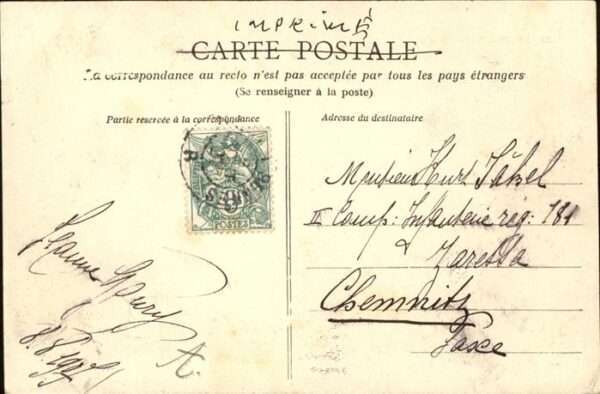 IMPRIMÉ
CARTE POSTALE
La correspondance au recto n'est pas acceptée par tous les pays étrangers
(Se renseigner à la poste)
Partie reservée à la correspondance
Adresse du destinataire
POSTES
Monsieur Kurt
II Comp: Infanterie reg: 181
Chemnitz
Saxe
Jeanne